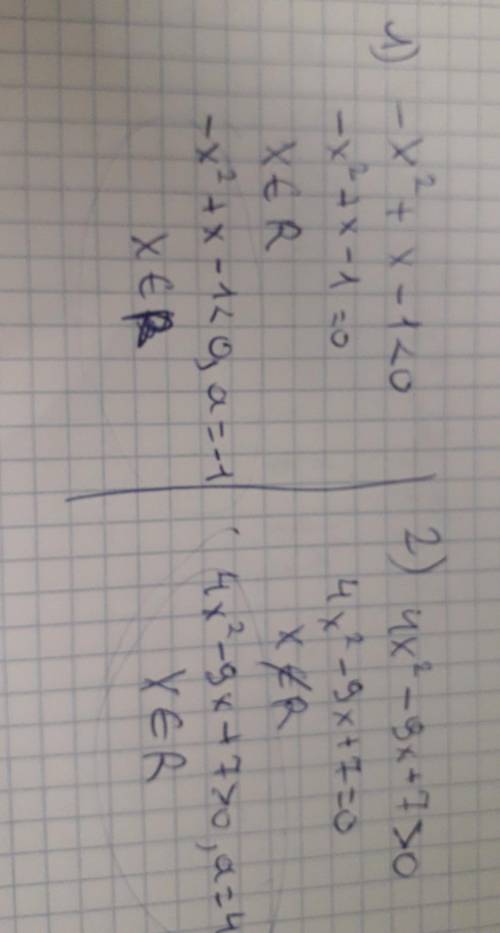 1) -x² + x - 1 < 0
-x² + x - 1 = 0
x ∈ R
-x² + x - 1 < 0, a = -1
x ∈ R
2) 4x² - 9x + 7 > 0
4x² - 9x + 7 = 0
x ∉ R
4x² - 9x + 7 > 0, a = 4
x ∈ R